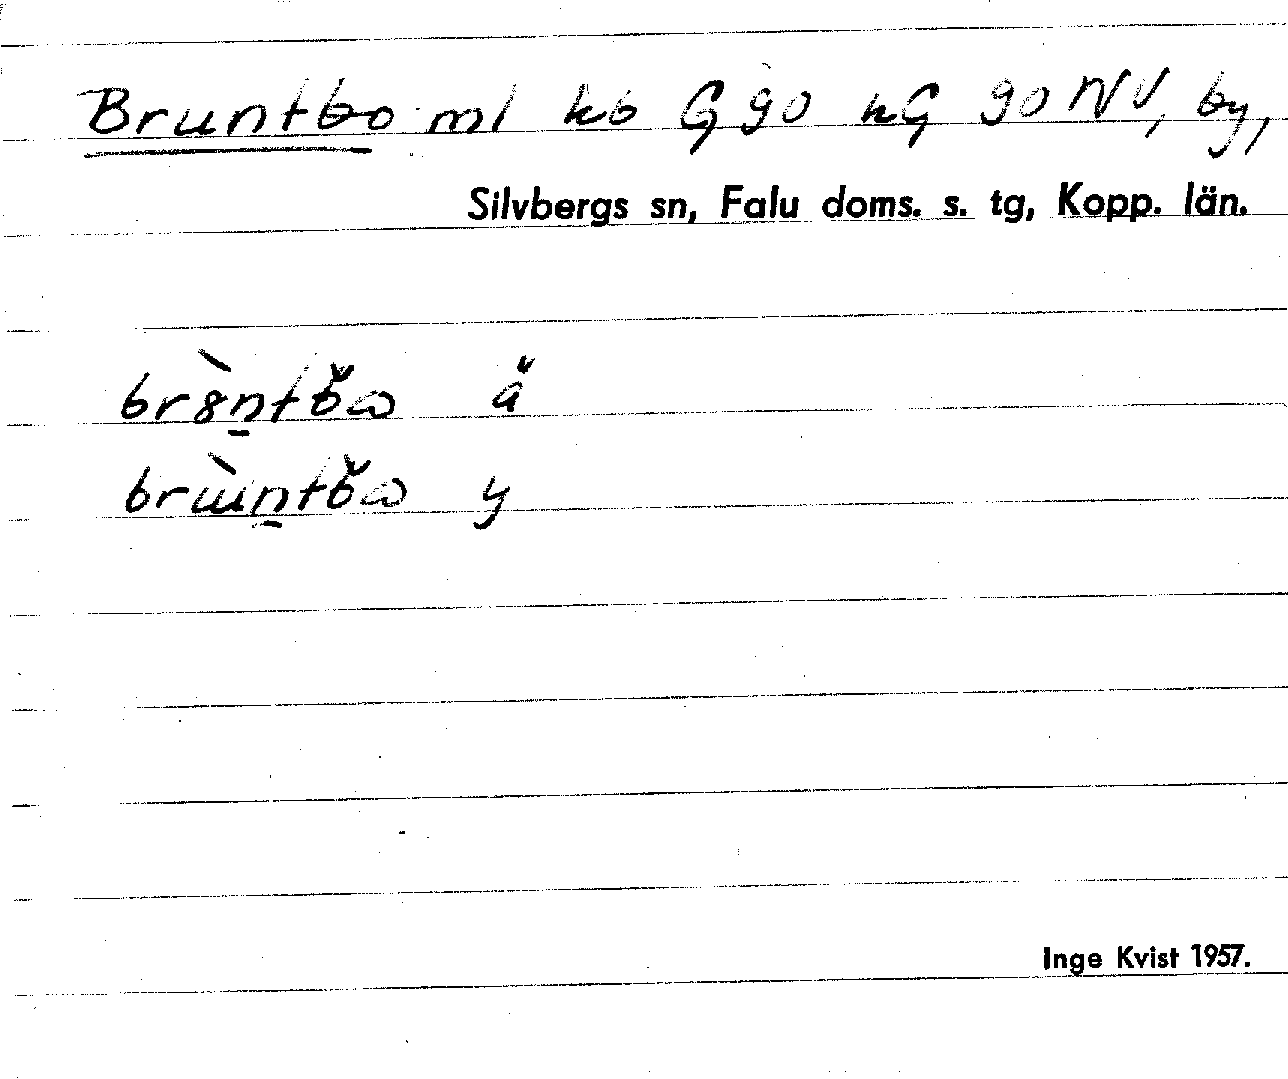 Bruntbo ml kb G 90 nG 90 NV, by,
Silvbergs sn, Falu doms. s. tg, Kopp. län.
br8̀n̲tb̌ɷ ǎ
brɯ̀n̲tb̌ɷ y
Inge Kvist 1957.